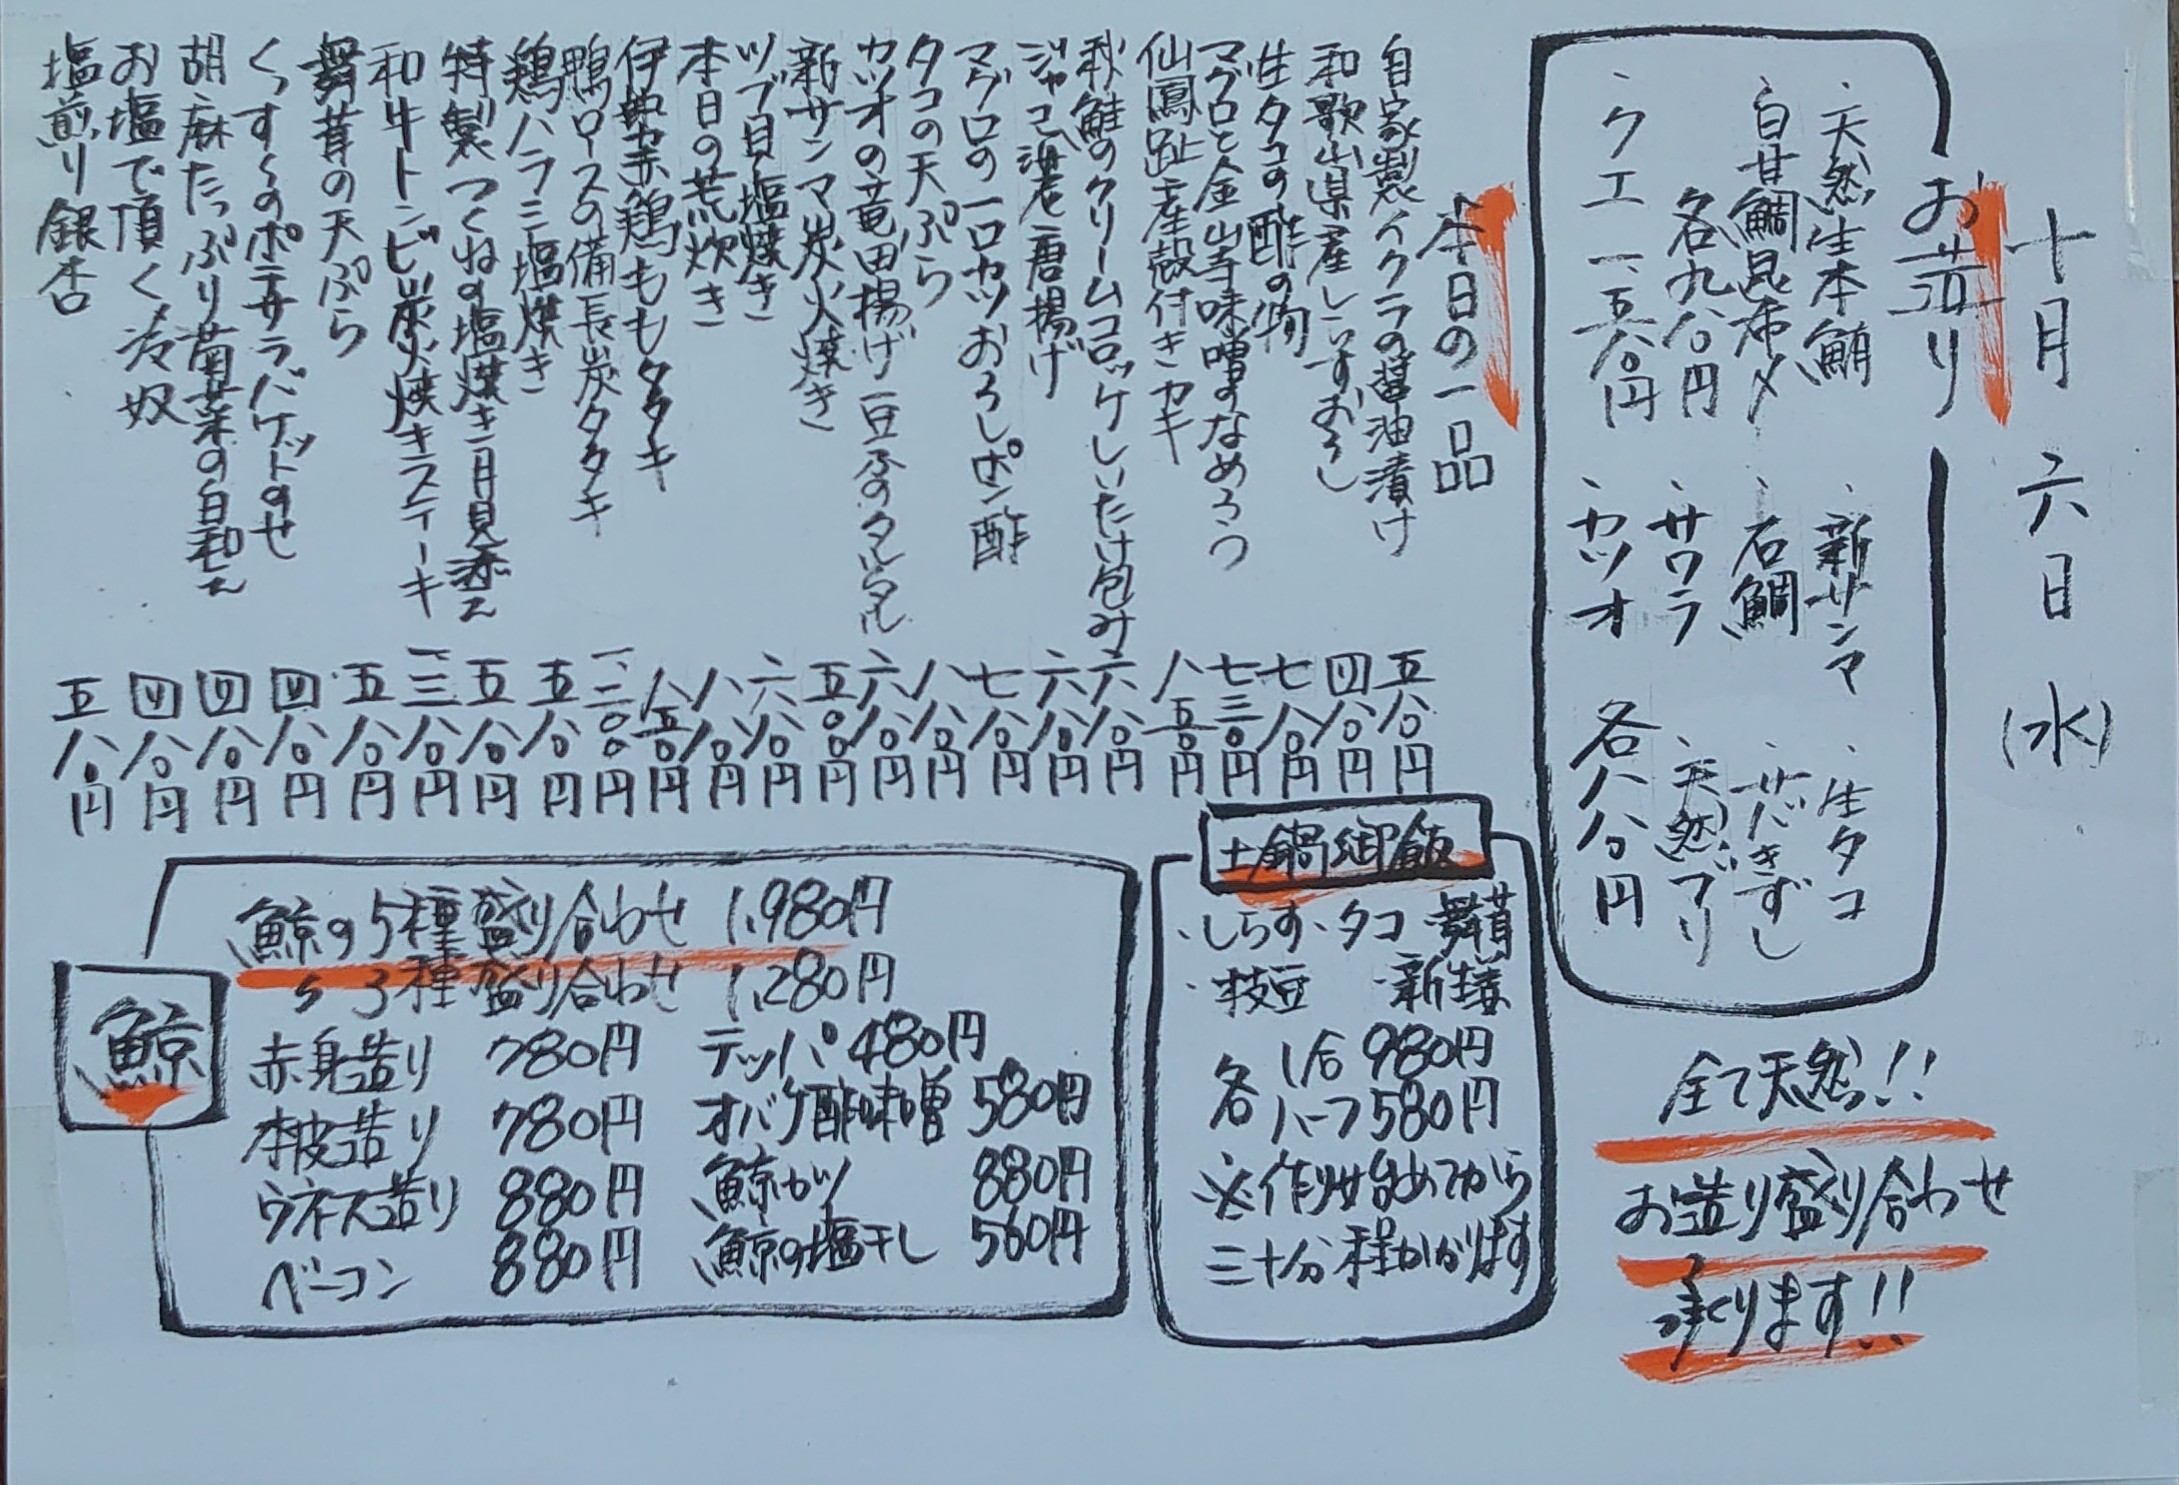 十月六日(水)
お造り
・天然生本鮪
・白甘鯛昆布〆
各九八〇円
・クエ 一、五八〇円
・新サンマ
・石鯛
・サワラ
・カツオ
・生タコ
・サバきずし
・天然ブリ
各八八〇円
全て天然!!
お造り盛り合わせ
承ります!!
本日の一品
自家製イクラの醤油漬け 五八〇円
和歌山県産しらすおろし 四八〇円
生タコの酢の物 七八〇円
マグロと金山寺味噌のなめろう 七三〇円
仙鳳趾産殻付きカキ 八五〇円
秋鮭のクリームコロッケしいたけ包み 六八〇円
ジャコ 唐揚げ 六八〇円
マグロの一口カツおろしポン酢 七八〇円
タコの天ぷら 八八〇円
カツオの竜田揚げ 豆ふのタルタル 六八〇円
新サンマ炭火焼き 五八〇円
ツブ貝塩焼き 六八〇円
本日の荒炊き 八八〇円
伊勢赤鶏ももタタキ 八五〇円
鴨ロースの備長炭タタキ 一、二〇〇円
鶏ハラミ塩焼き 五八〇円
特製つくねの塩焼き 月見添え 五八〇円
和牛トンビ炭火焼きステーキ 一、三八〇円
舞茸の天ぷら 五八〇円
くっすくのポテサラバケットのせ 四八〇円
胡麻たっぷり菊菜の白和え 四八〇円
お塩で頂く冷奴 四八〇円
塩煎り銀杏 五八〇円
土鍋御飯
・しらす・タコ・舞茸
・枝豆 ・新生姜
各 1合 980円
各 ハーフ 580円
※作り始めてから
三十分程かかります
鯨
鯨の5種盛り合わせ 1,980円
〃 3種盛り合わせ 1,280円
赤身造り 780円
本皮造り 780円
ウネス造り 880円
ベーコン 880円
テッパ 480円
オバケ酢味噌 580円
鯨カツ 880円
鯨の塩干し 560円